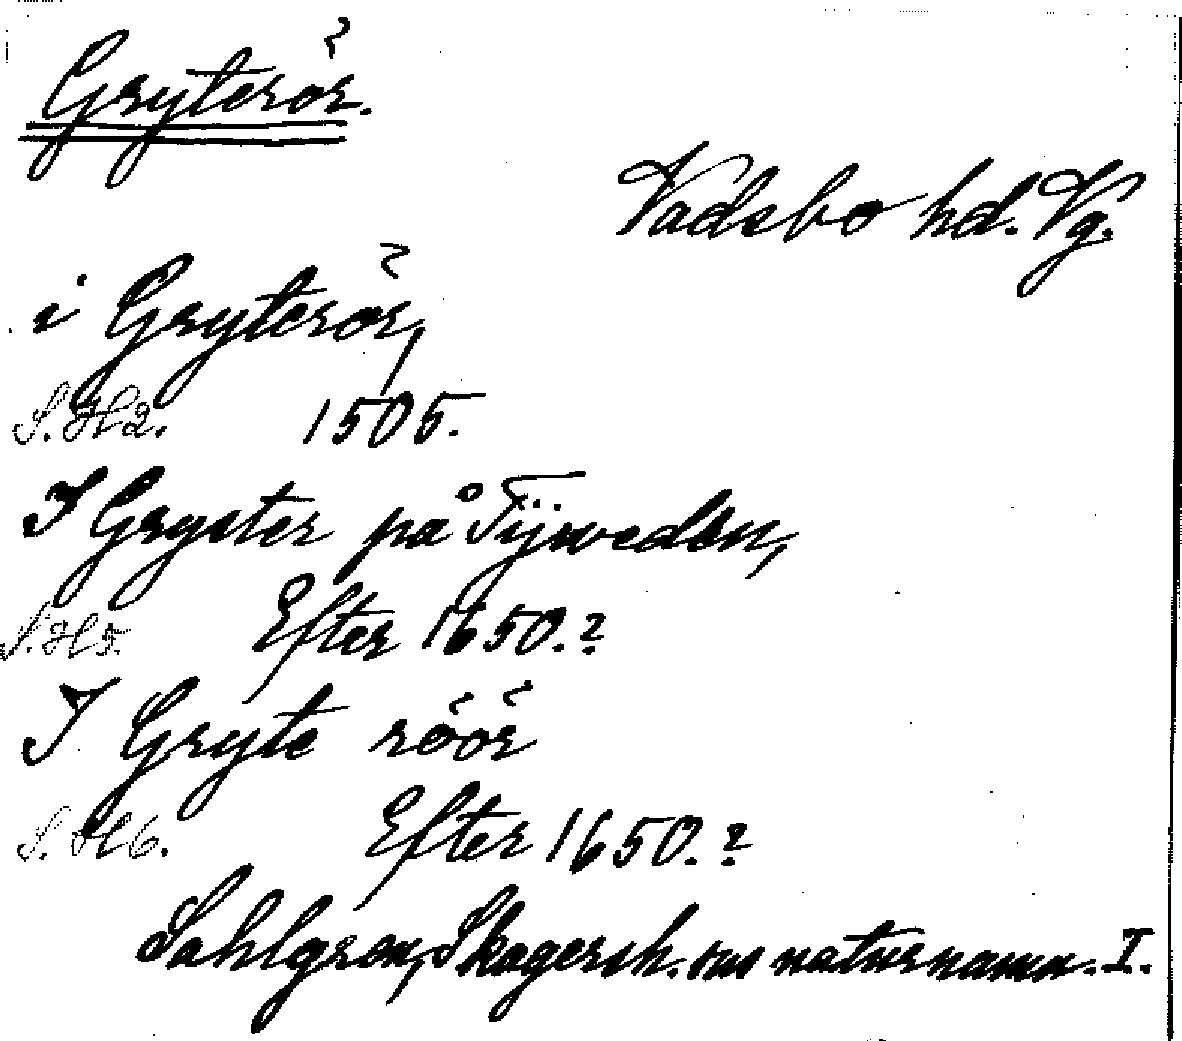 Gryterör.
Vadsbo hd. Vg.
i Gryterör,
S. H2. 1505.
I Gryter på Tijweden,
S. H5. Efter 1650.?
I Gryte röör
S. H6. Efter 1650.?
Sahlgren, Skagersh:ms naturnamn. I.